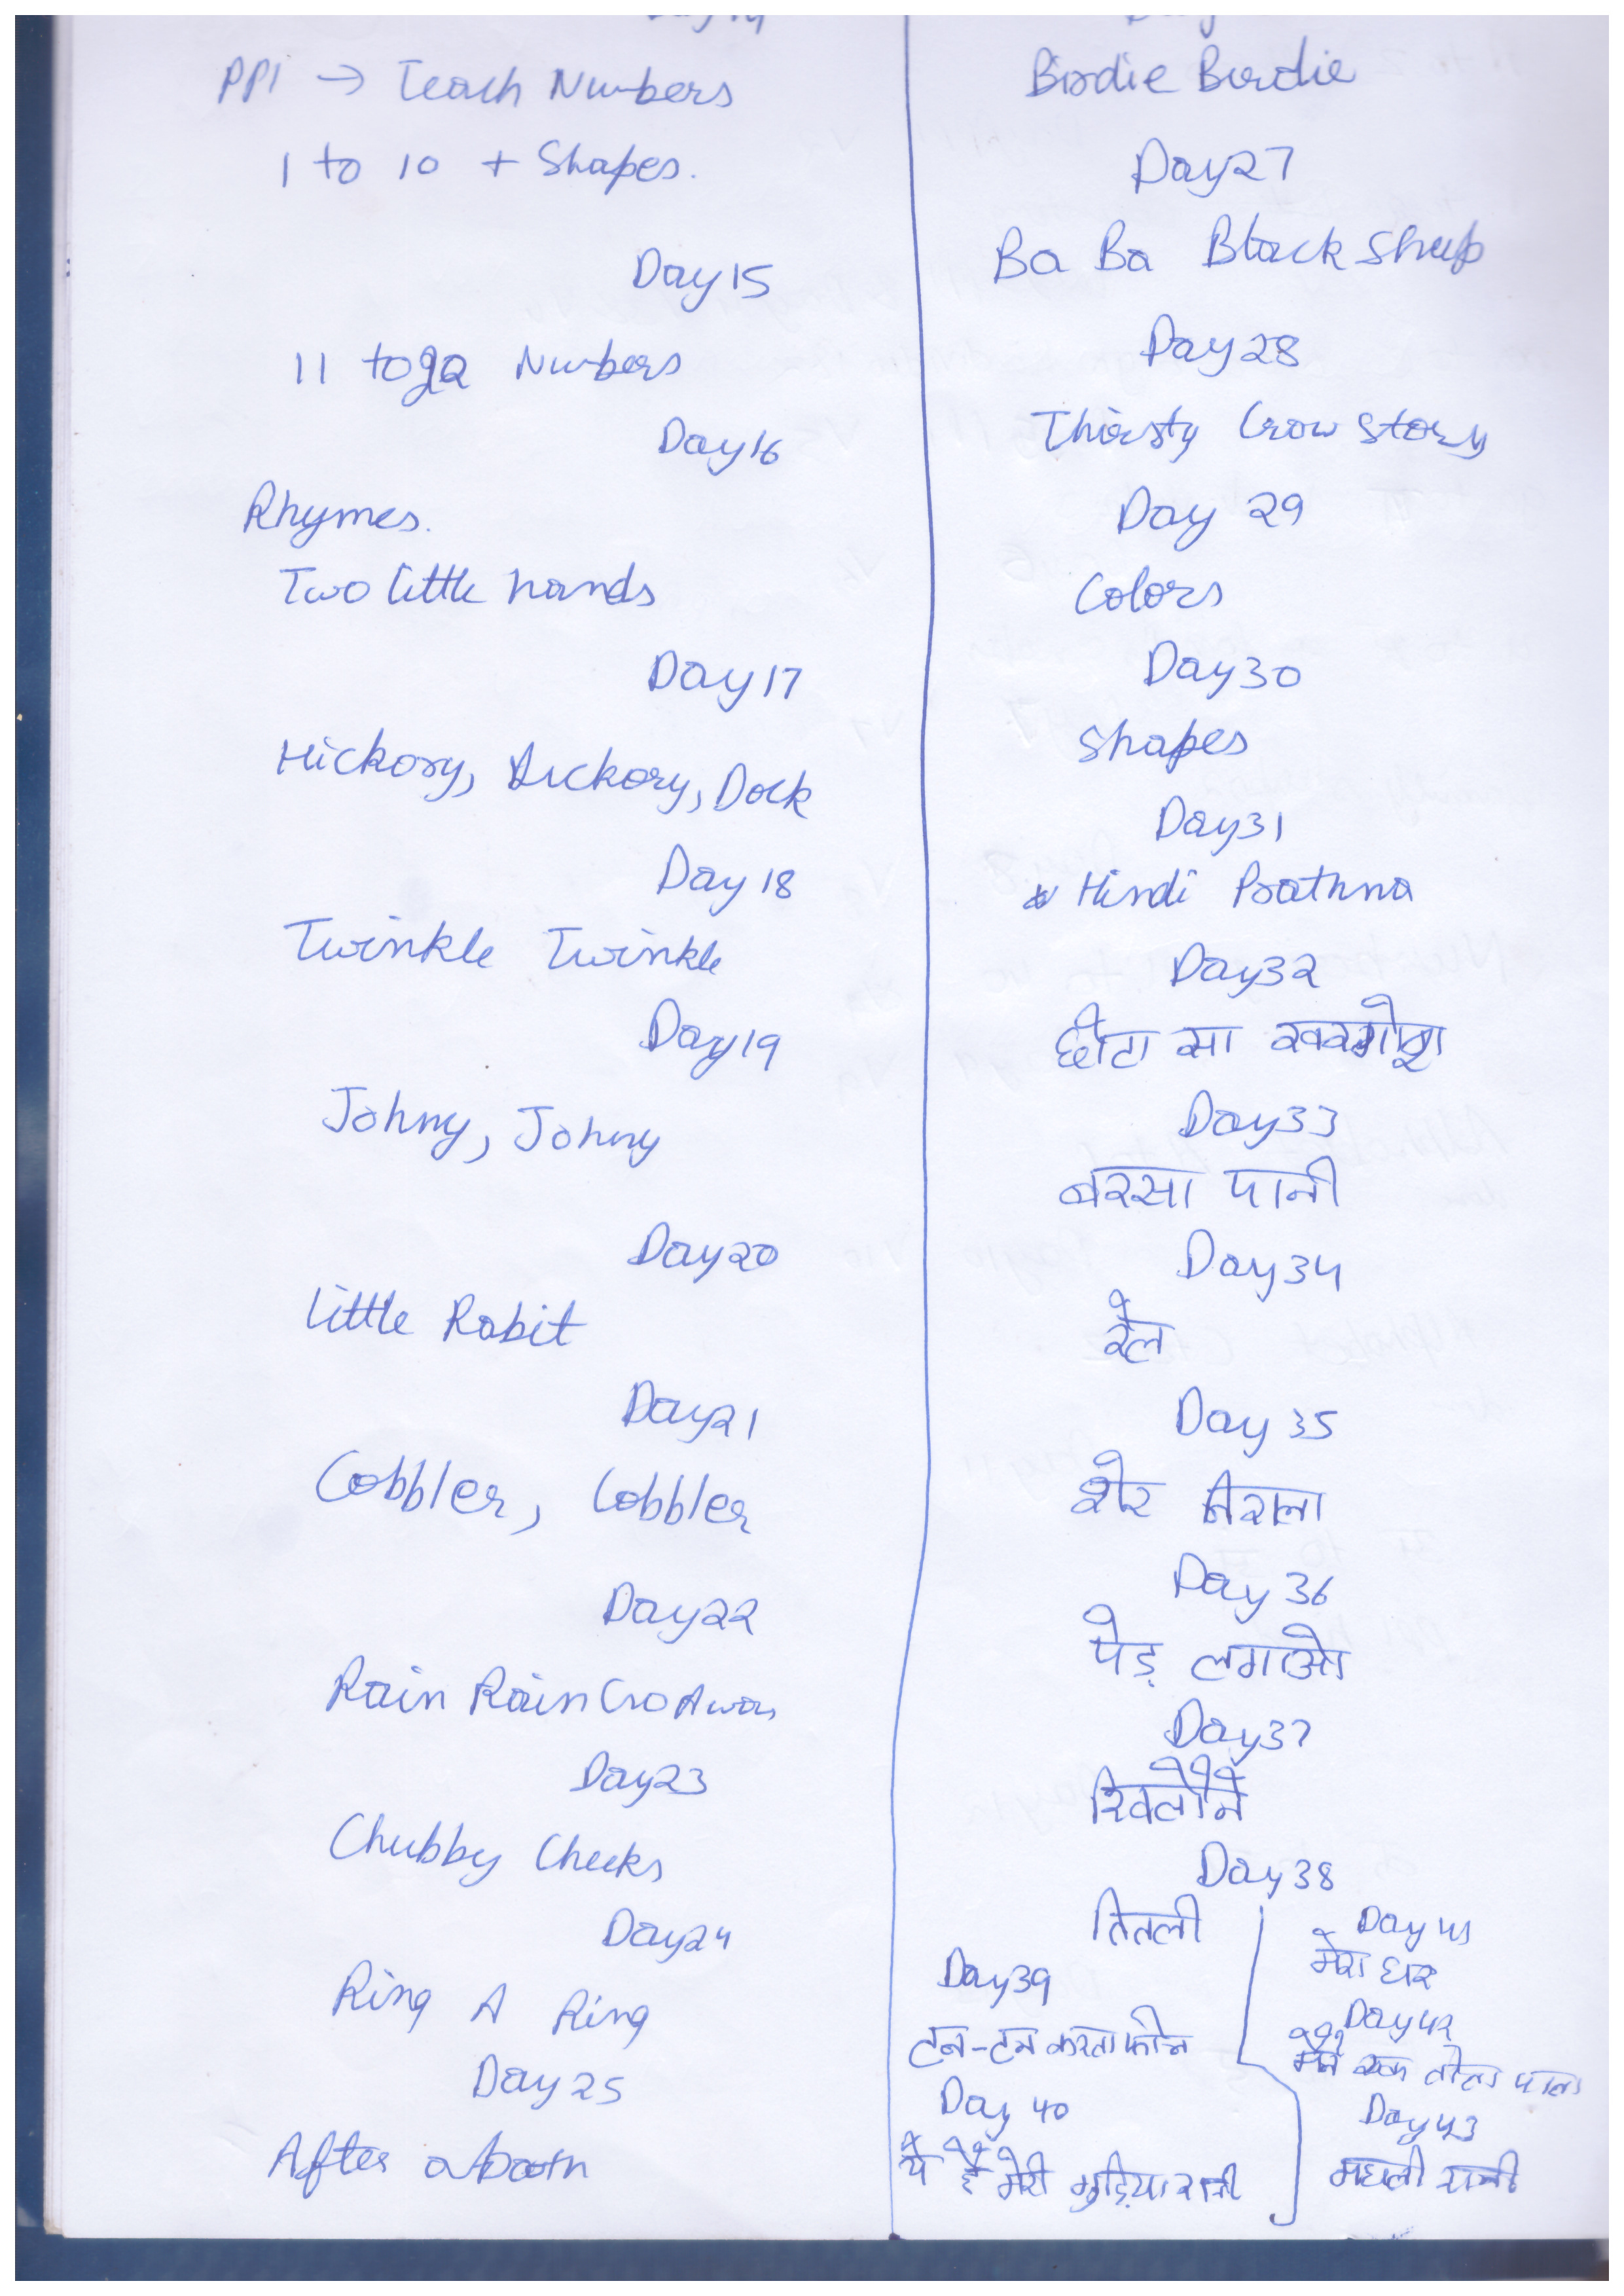 Day 14
PP1 → Teach Numbers
1 to 10 + Shapes.
Day 15
11 to 20 Numbers
Day 16
Rhymes.
Two little hands
Day 17
Hickory, Dickory, Dock
Day 18
Twinkle Twinkle
Day 19
Johny, Johny
Day 20
Little Rabit
Day 21
Cobbler, Cobbler
Day 22
Rain Rain Go Away
Day 23
Chubby Cheeks
Day 24
Ring A Ring
Day 25
After a bath
Day
Birdie Birdie
Day 27
Ba Ba Black Sheep
Day 28
Thirsty Crow Story
Day 29
Colors
Day 30
Shapes
Day 31
Hindi Prathna
Day 32
छोटा सा खरगोश
Day 33
बरसा पानी
Day 34
रेल
Day 35
शेर निराला
Day 36
पेड़ लगाओ
Day 37
खिलौने
Day 38
तितली
Day 39
टन-टन करता फोन
Day 40
ये है मेरी गुड़िया रानी
Day 41
मेरा घर
Day 42
मैंने एक तोता पाला
Day 43
मछली रानी